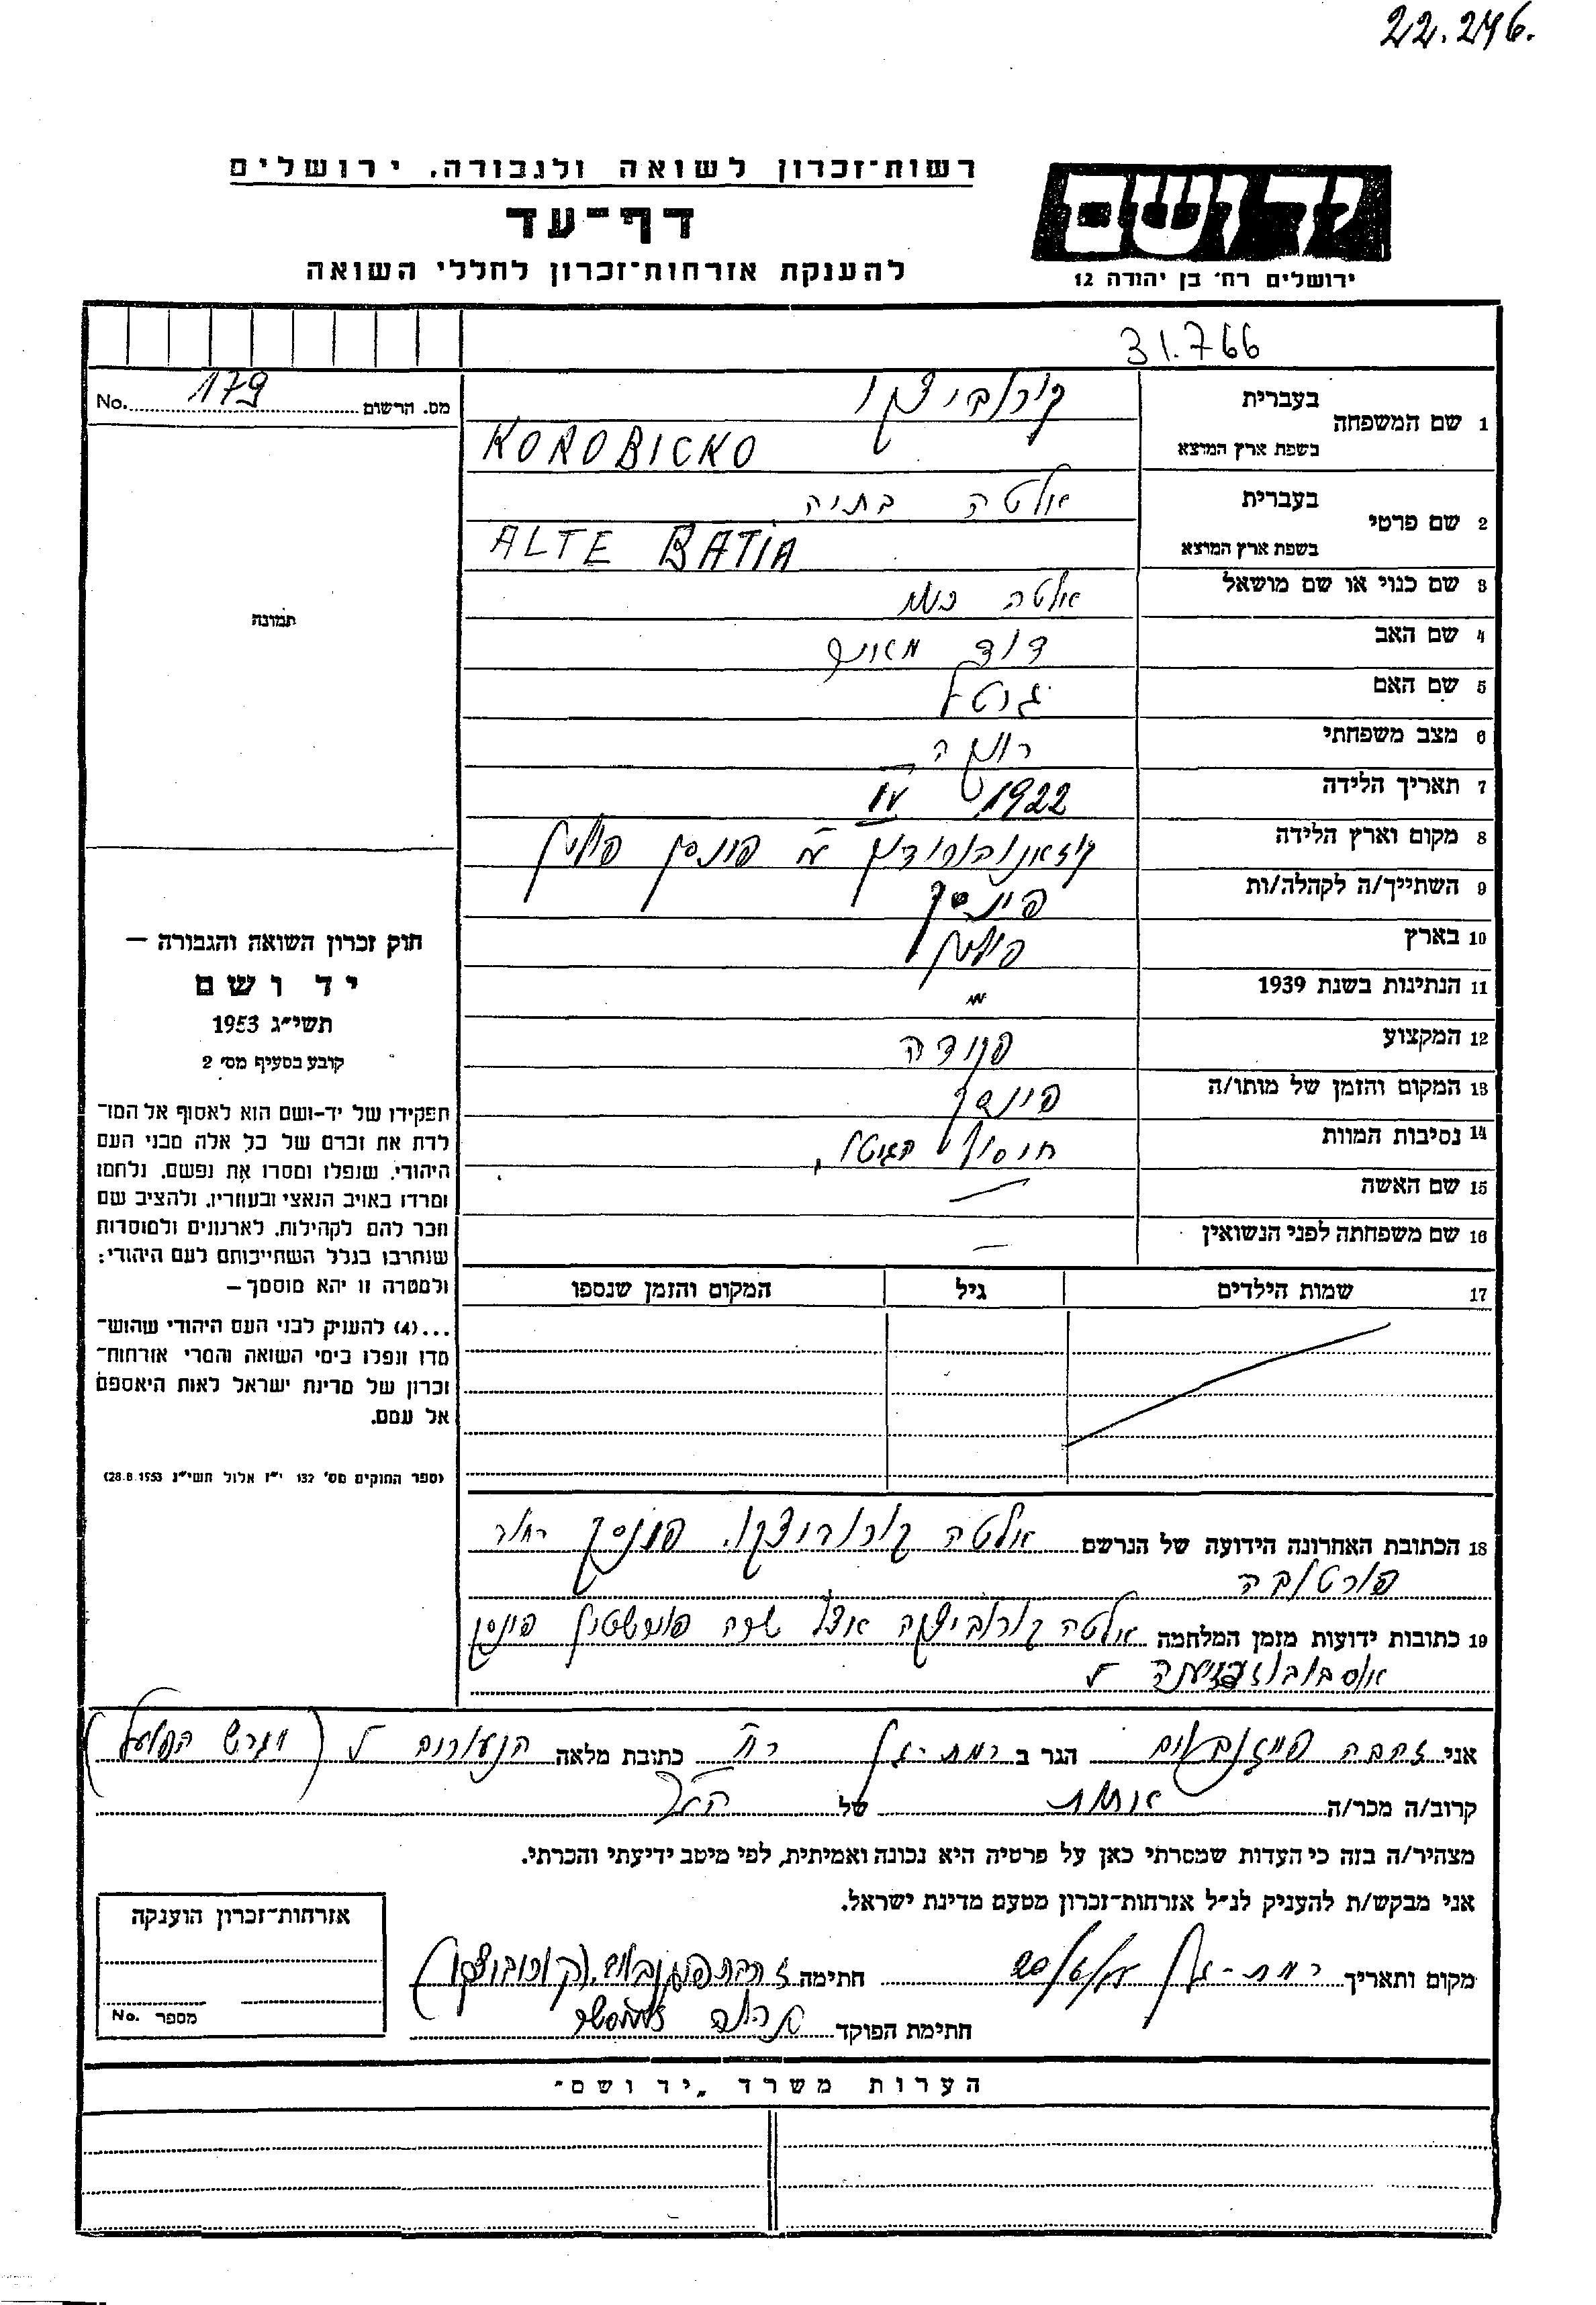 22.246.
רשות־זכרון לשואה ולגבורה, ירושלים
דף־עד
להענקת אזרחות־זכרון לחללי השואה
יד ושם
ירושלים רח' בן יהודה 12
31.766
No. 179 מס. הרשום
1 שם המשפחה בעברית קורוביצקו
בשפת ארץ המוצא KOROBICKO
2 שם פרטי בעברית אלטה בתיה
בשפת ארץ המוצא ALTE BATIA
3 שם כנוי או שם מושאל אלטה
4 שם האב דוד
5 שם האם
6 מצב משפחתי רווקה
7 תאריך הלידה 1922 IV
8 מקום וארץ הלידה פינסק פולין
9 השתייך/ה לקהלה/ות פינסק
10 בארץ פולין
11 הנתינות בשנת 1939 "
12 המקצוע פקידה
13 המקום והזמן של מותו/ה פינסק
14 נסיבות המוות חיסול הגיטו
15 שם האשה —
16 שם משפחתה לפני הנשואין —
17 שמות הילדים גיל המקום והזמן שנספו
18 הכתובת האחרונה הידועה של הנרשם אלטה קורוביצקו, פינסק רחוב
פורטובה
19 כתובות ידועות מזמן המלחמה אלטה קורוביצקה אצל שרה פינסק
תמונה
חוק זכרון השואה והגבורה —
יד ושם
תשי״ג 1953
קובע בסעיף מס׳ 2
תפקידו של יד־ושם הוא לאסוף אל המו־
לדת את זכרם של כל אלה מבני העם
היהודי, שנפלו ומסרו את נפשם, נלחמו
ומרדו באויב הנאצי ובעוזריו, ולהציב שם
וזכר להם לקהילות, לארגונים ולמוסדות
שנחרבו בגלל השתייכותם לעם היהודי;
ולמטרה זו יהא מוסמך —
...(4) להעניק לבני העם היהודי שהוש־
מדו ונפלו בימי השואה והמרי אזרחות־
זכרון של מדינת ישראל לאות היאספם
אל עמם.
(ספר החוקים מס׳ 132 י״ז אלול תשי״ג 28.8.1953)
אני זהבה הגר ב רמת-גן רח' כתובת מלאה הנעורים 5 (מגרש הפועל)
קרוב/ה מכר/ה אחות של הנ"ל
מצהיר/ה בזה כי העדות שמסרתי כאן על פרטיה היא נכונה ואמיתית, לפי מיטב ידיעתי והכרתי.
אני מבקש/ת להעניק לנ״ל אזרחות־זכרון מטעם מדינת ישראל.
מקום ותאריך רמת-גן חתימה זהבה (קורוביצקו)
חתימת הפוקד
אזרחות־זכרון הוענקה
מספר No.
הערות משרד „יד ושם״